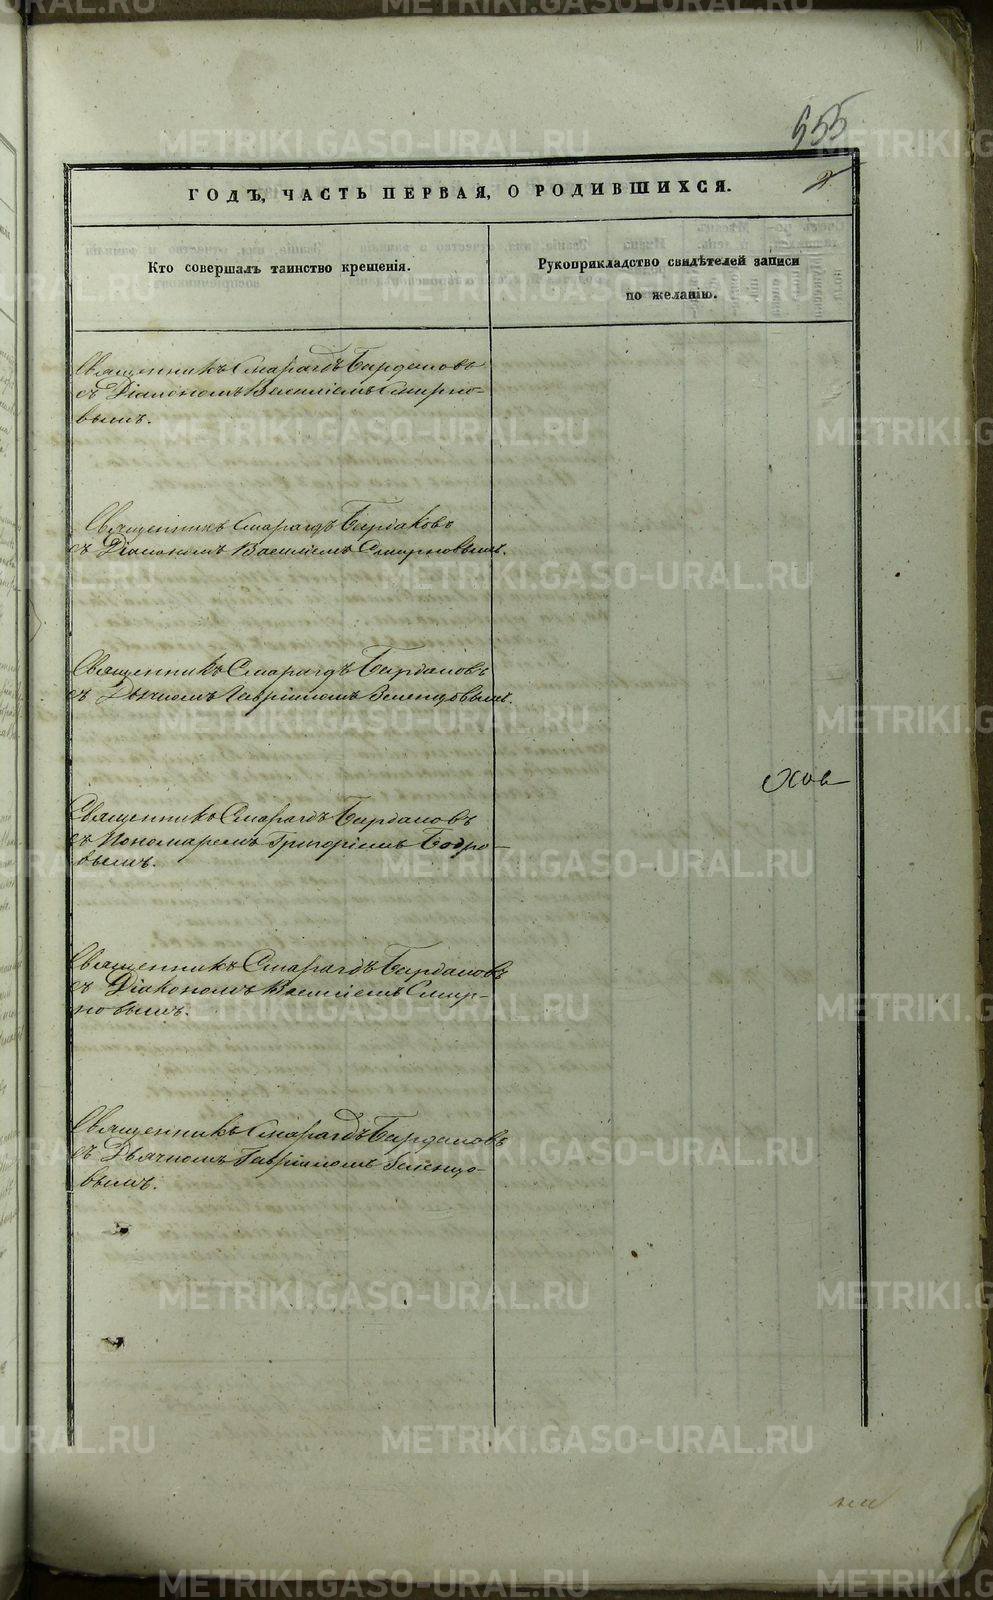 955
2
ГОДЪ, ЧАСТЬ ПЕРВАЯ, О РОДИВШИХСЯ.
Кто совершалъ таинство крещенія.
Рукоприкладство свидѣтелей записи
по желанію.
Священникъ Смарагдъ Бирдановъ
съ Діакономъ Василіемъ Смирно-
вымъ.
Священникъ Смарагдъ
съ Діакономъ Василіемъ Смирновымъ.
Священникъ Смарагдъ Бирдановъ
съ Дьячкомъ Гавріиломъ Зеленцовымъ.
Священникъ Смарагдъ Бирдановъ
съ Пономаремъ Григоріемъ Бодро-
вымъ.
Священникъ Смарагдъ Бирдановъ
съ Діакономъ Василіемъ Смир-
новымъ.
Священникъ Смарагдъ Бирдановъ
съ Дьячкомъ Гавріиломъ Зеленцо-
вымъ.
METRIKI.GASO-URAL.RU